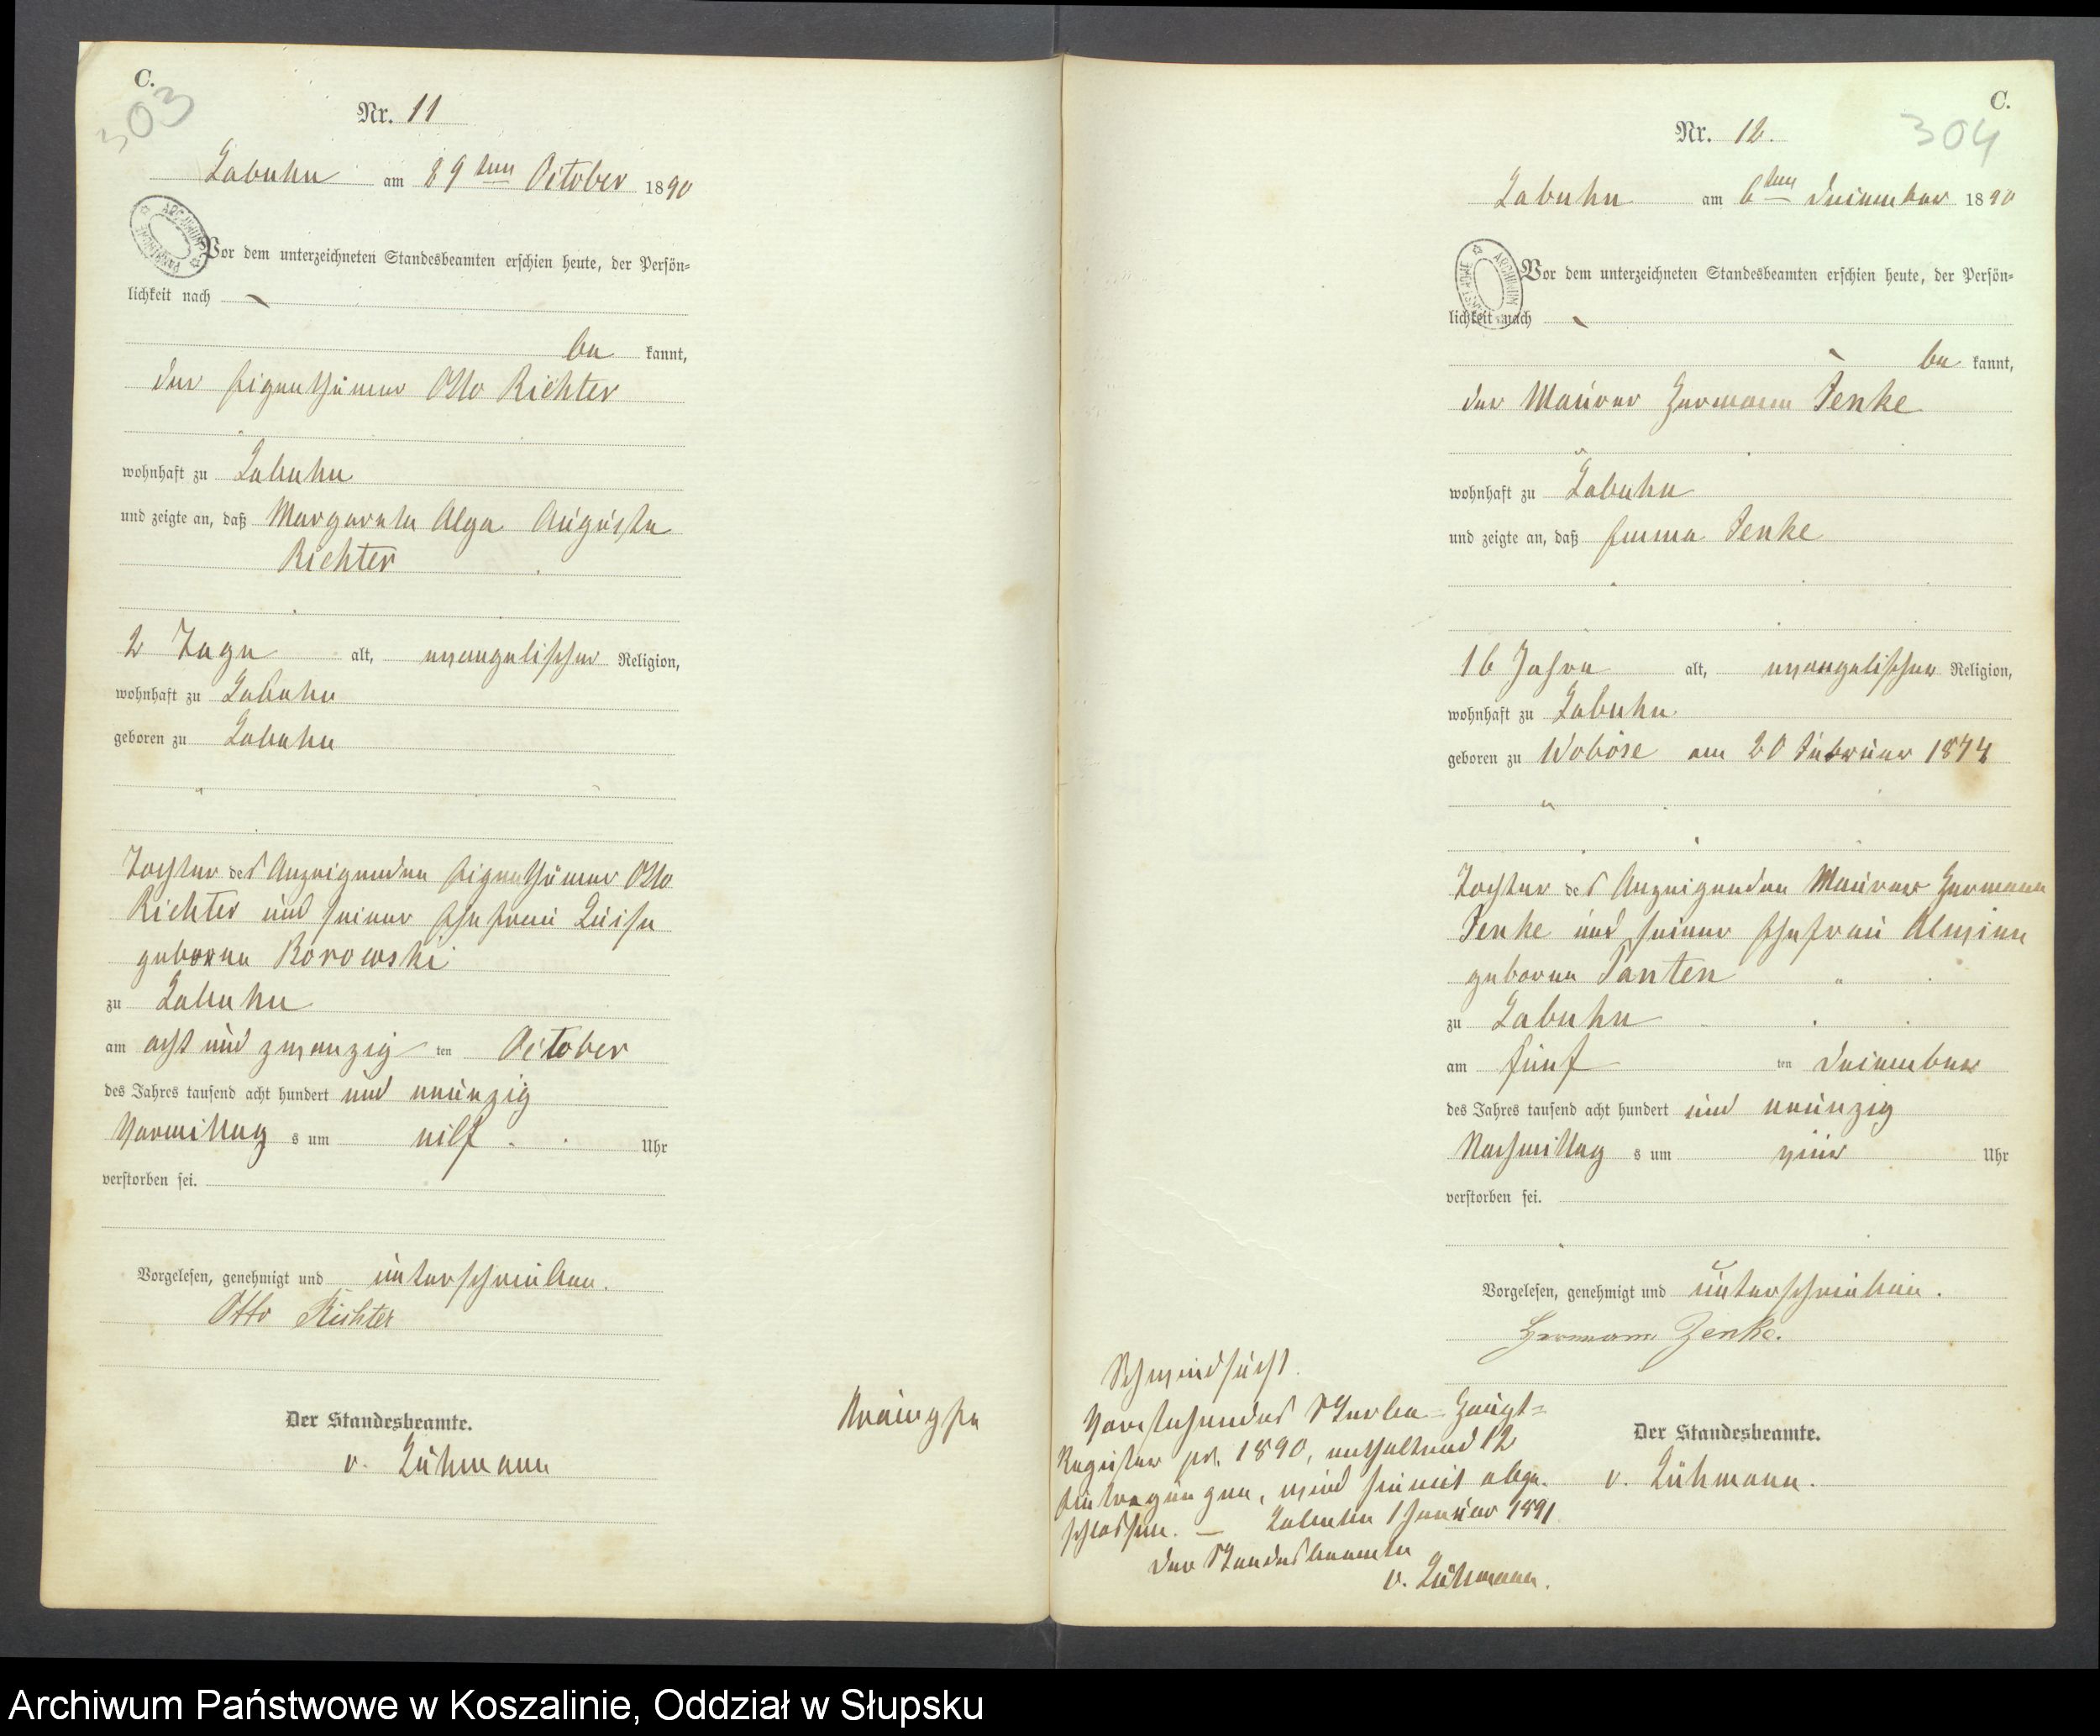 C.
303
Nr. 11
Labuhn am 29ten October 1890
ARCHIWUM PAŃSTWOWE
Vor dem unterzeichneten Standesbeamten erschien heute, der Persön-
lichkeit nach
be kannt,
der Eigenthümer Otto Richter
wohnhaft zu Labuhn
und zeigte an, daß Margarete Olga Auguste
Richter
2 Tage alt, evangelischer Religion,
wohnhaft zu Labuhn
geboren zu Labuhn
Tochter des Anzeigenden Eigenthümer Otto
Richter und seiner Ehefrau Luise
geborne Borowski
zu Labuhn
am acht und zwanzig ten October
des Jahres tausend acht hundert und neunzig
Vormittag s um elf Uhr
verstorben sei.
Vorgelesen, genehmigt und unterschrieben.
Otto Richter
Der Standesbeamte.
v. Lühmann
Kraempfe
C.
304
Nr. 12.
Labuhn am 6ten December 1890
ARCHIWUM PAŃSTWOWE
Vor dem unterzeichneten Standesbeamten erschien heute, der Persön-
lichkeit nach
be kannt,
der Maurer Hermann Jenke
wohnhaft zu Labuhn
und zeigte an, daß Emma Jenke
16 Jahre alt, evangelischer Religion,
wohnhaft zu Labuhn
geboren zu Woböse am 20 Februar 1874
Tochter des Anzeigenden Maurer Hermann
Jenke und seiner Ehefrau Alwine
geborne Panten
zu Labuhn
am fünf ten December
des Jahres tausend acht hundert und neunzig
Nachmittag s um vier Uhr
verstorben sei.
Vorgelesen, genehmigt und unterschrieben.
Hermann Jenke.
Schwindsucht.
Der Standesbeamte.
v. Lühmann.
Vorstehendes Sterbe-Haupt-
Register pr. 1890, enthaltend 12
Eintragungen, wird hiermit abge-
schlossen. — Labuhn 1 Januar 1891
Der Standesbeamte
v. Lühmann.
Archiwum Państwowe w Koszalinie, Oddział w Słupsku